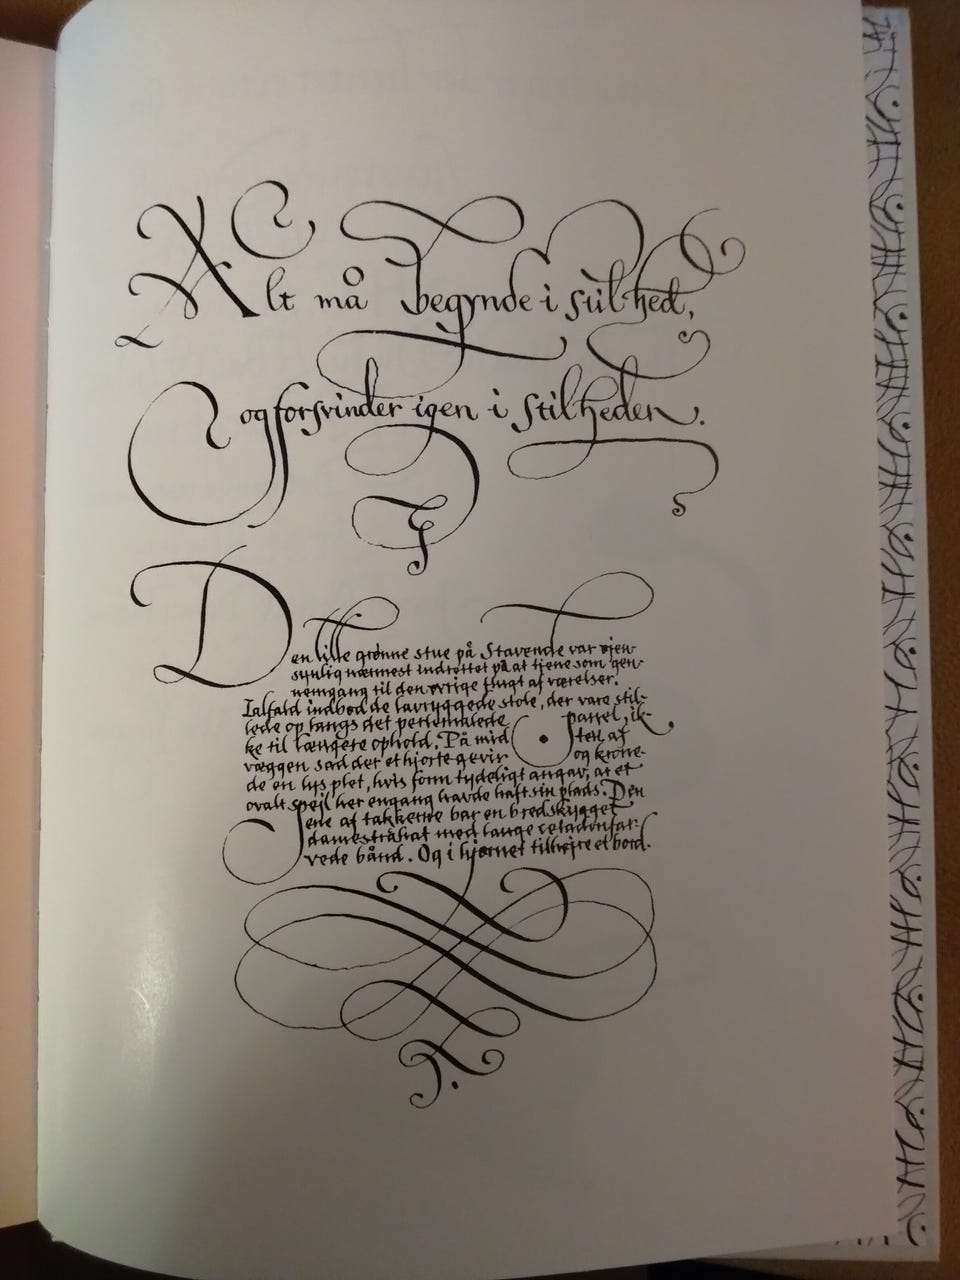 Alt må begynde i stilhed,
og forsvinder igen i stilheden.
Den lille grønne stue på Stavende var øjen-
synlig nærmest indrettet på at tjene som gen-
nemgang til den øvrige flugt af værelser.
Ialfald indbød de lavryggede stole, der vare stil-
lede op langs det perlemalede parrel, ik-
ke til længere ophold. På mid ten af
væggen sad der et hjortegevir og krone-
de en lys plet, hvis form tydeligt angav, at et
ovalt spejl her engang havde haft sin plads. Den
ene af takkerne bar en bredskygget
damestråhat med lange celadonfar-
vede bånd. Og i hjørnet tilhøjre et bord.